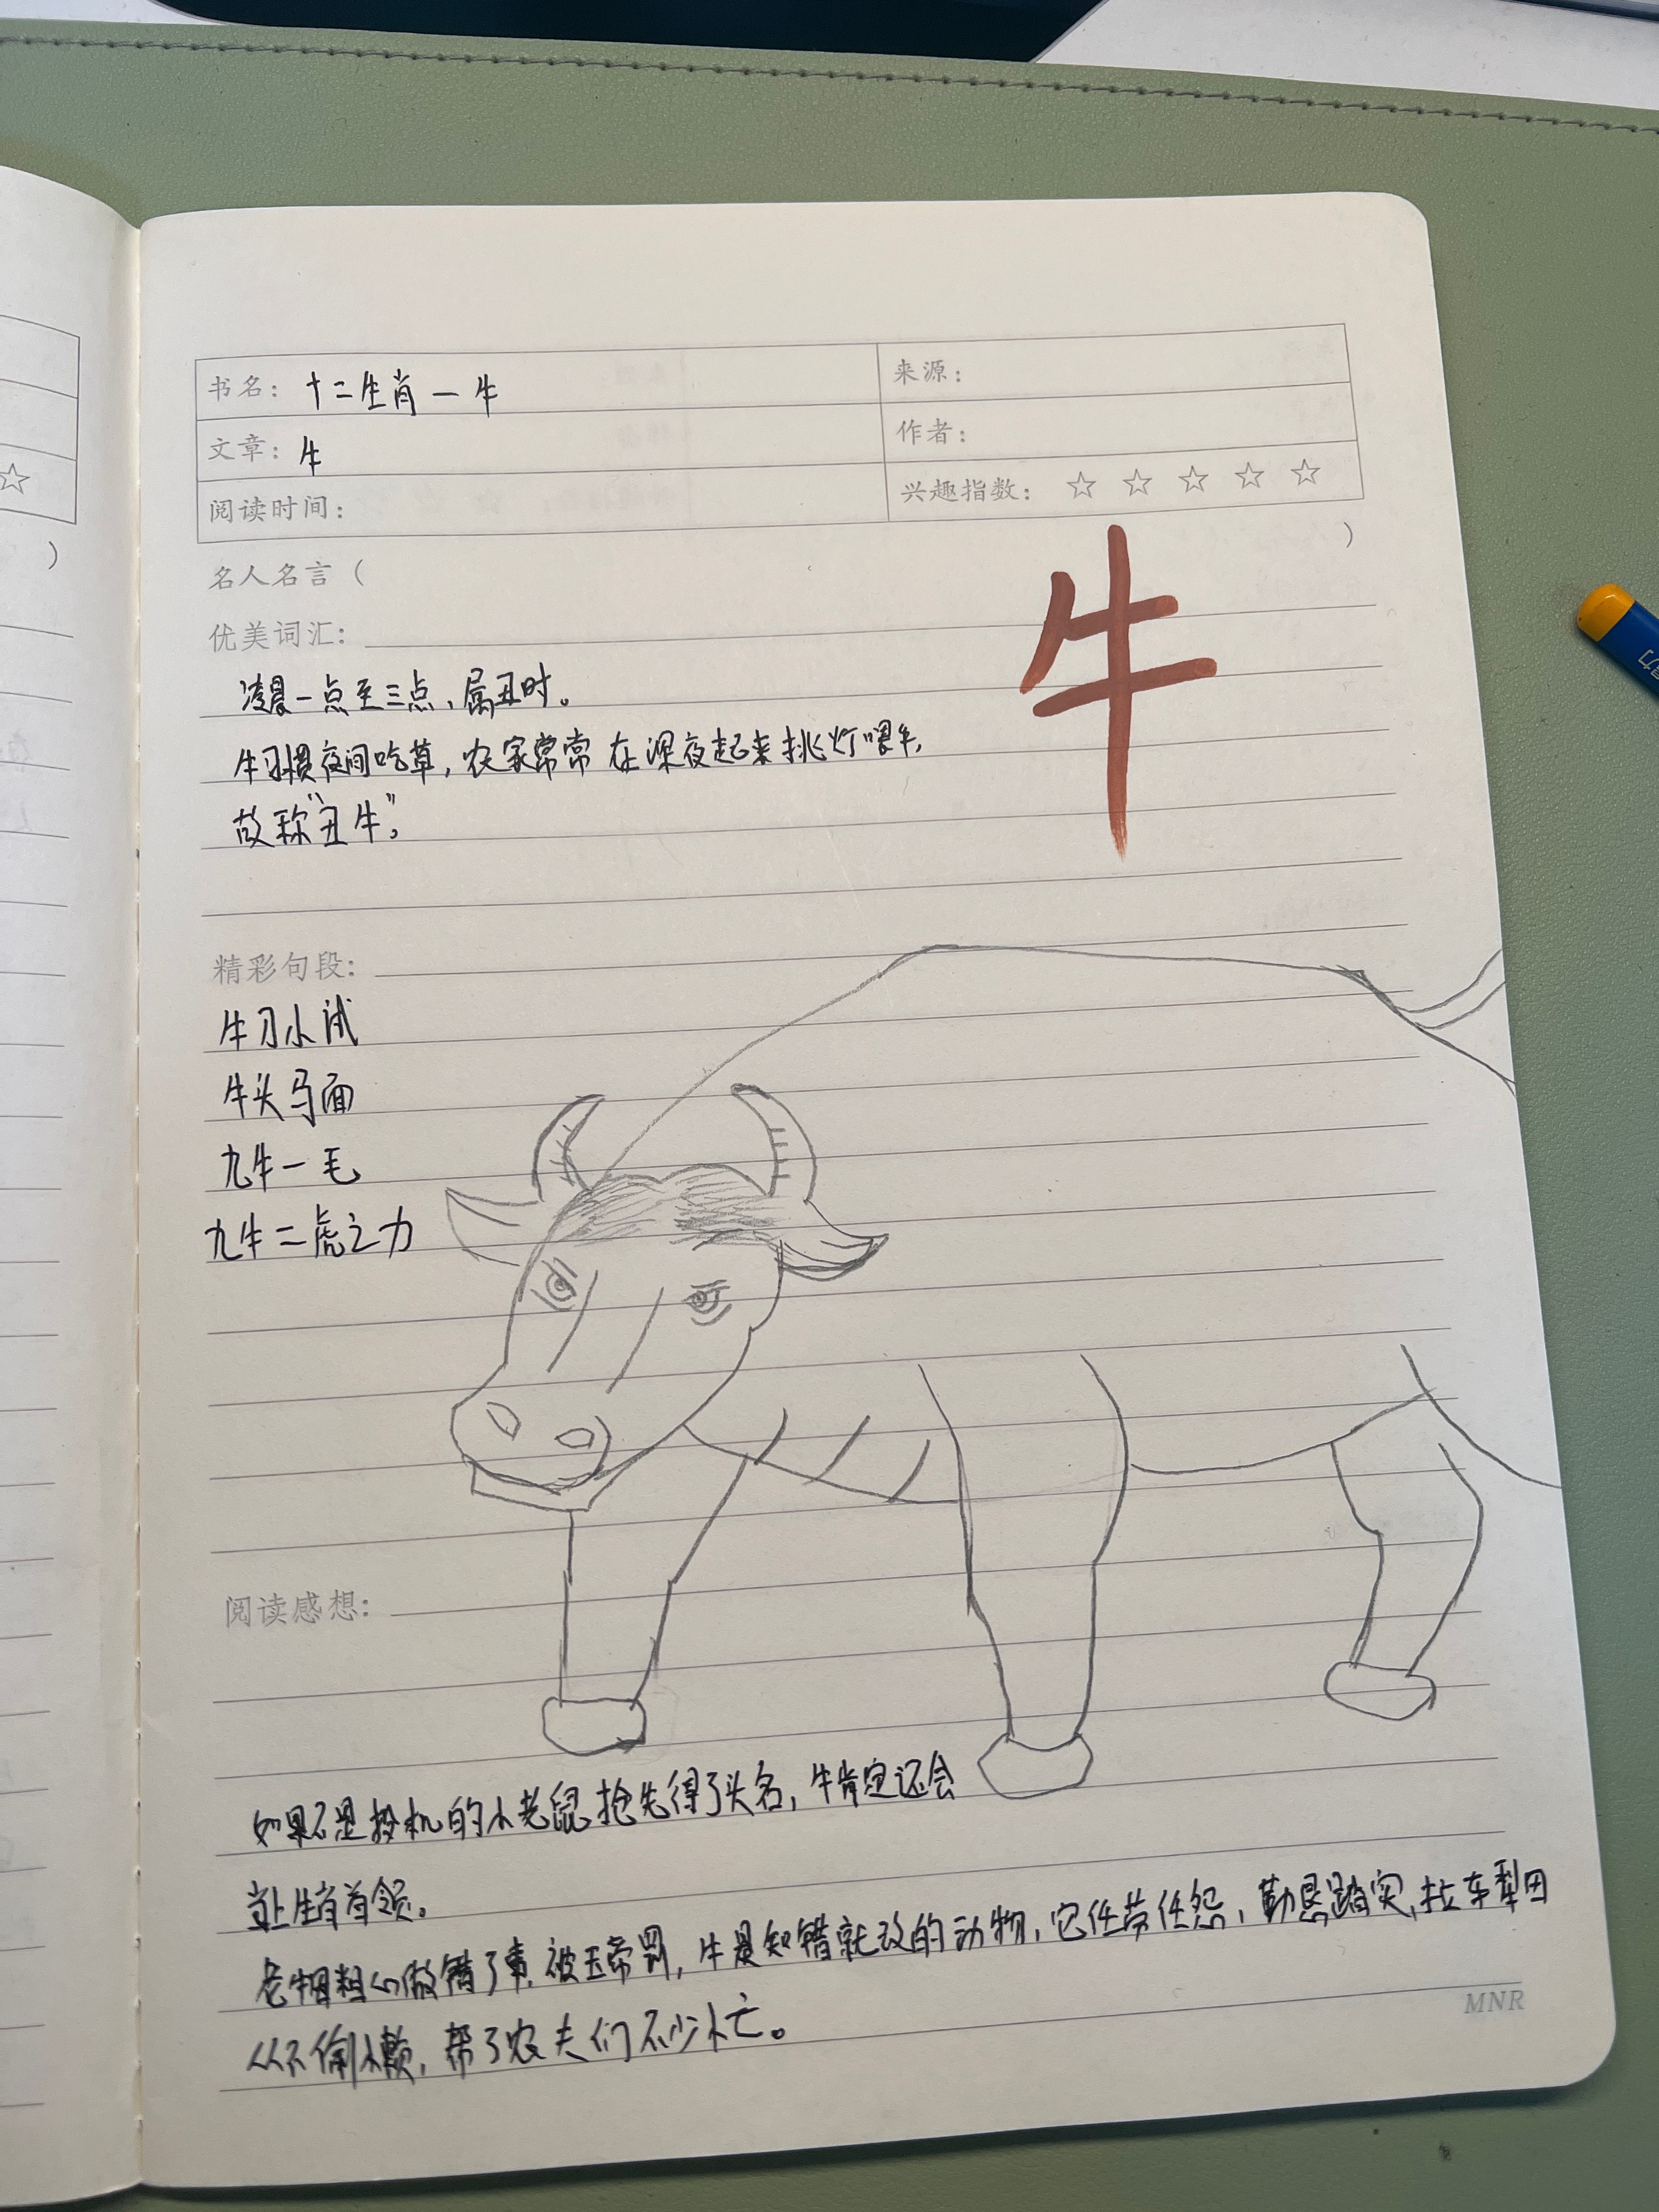 书名：十二生肖—牛
来源：
文章：牛
作者：
阅读时间：
兴趣指数：☆ ☆ ☆ ☆ ☆
名人名言（ ）
优美词汇：
牛
凌晨一点至三点，属丑时。
牛习惯夜间吃草，农家常常在深夜起来挑灯喂牛，
故称“丑牛”。
精彩句段：
牛刀小试
牛头马面
九牛一毛
九牛二虎之力
阅读感想：
如果不是投机的小老鼠抢先得了头名，牛肯定还会
当上生肖首领。
老牛粗心做错了事，被玉帝罚，牛是知错就改的动物，它任劳任怨，勤恳踏实，拉车犁田
从不偷懒，帮了农夫们不少忙。
MNR